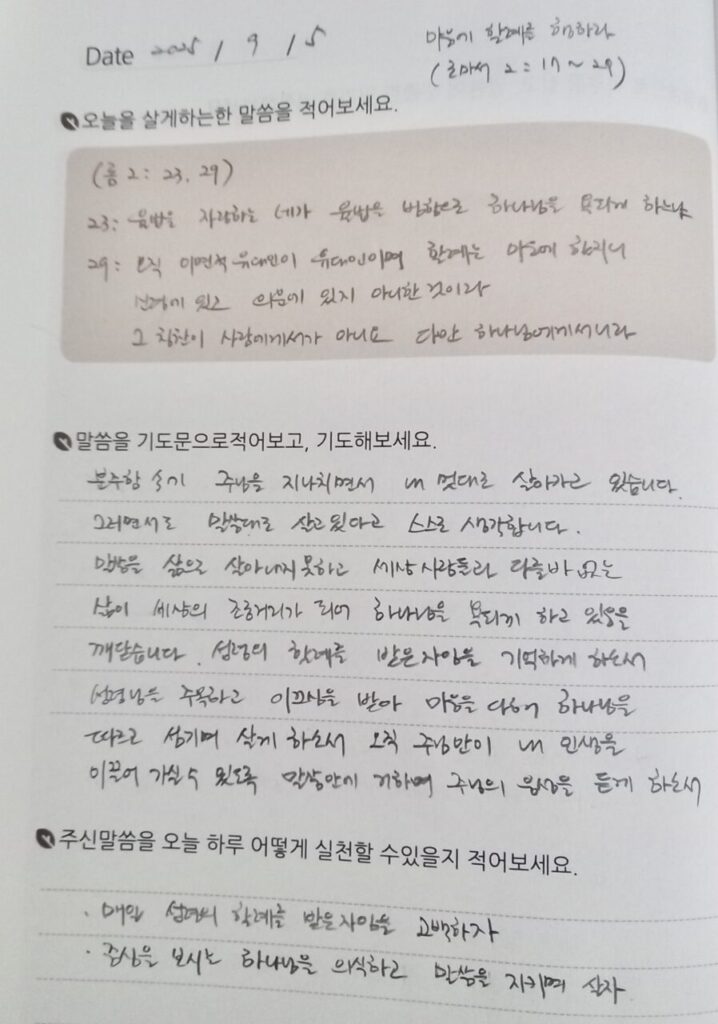 Date 2025 / 9 / 15
마음에 할례를 행하라
(로마서 2 : 17 ~ 29)
오늘을 살게하는한 말씀을 적어보세요.
(롬 2 : 23, 29)
23: 율법을 자랑하는 네가 율법을 범함으로 하나님을 욕되게 하느냐
29: 오직 이면적 유대인이 유대인이며 할례는 마음에 할지니
신령에 있고 의문에 있지 아니한 것이라
그 칭찬이 사람에게서가 아니요 다만 하나님에게서니라
말씀을 기도문으로적어보고, 기도해보세요.
분주함 속에 주님을 지나치면서 내 멋대로 살아가고 있습니다.
그러면서도 말씀대로 살고있다고 스스로 생각합니다.
말씀을 삶으로 살아내지못하고 세상사람들과 다를바 없는
삶이 세상의 조롱거리가 되어 하나님을 욕되게 하고 있음을
깨닫습니다. 성령의 할례를 받은자임을 기억하게 하소서
성령님을 주목하고 이끄심을 받아 마음을 다해 하나님을
따르고 섬기며 살게 하소서 오직 주님만이 내 인생을
이끌어 가실수 있도록 말씀안에 거하며 주님의 음성을 듣게 하소서
주신말씀을 오늘 하루 어떻게 실천할 수있을지 적어보세요.
· 매일 성령의 할례를 받은자임을 고백하자
· 중심을 보시는 하나님을 의식하고 말씀을 지키며 살자